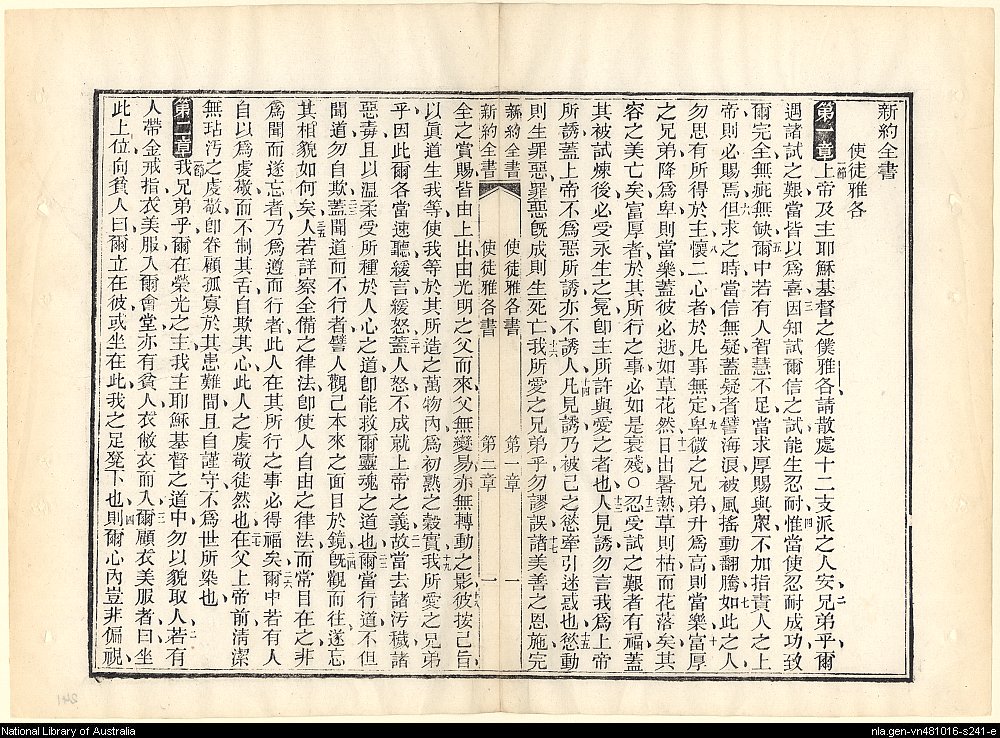 新約全書
使徒雅各
第一章 一節 上帝及主耶穌基督之僕雅各請散處十二支派之人安二兄弟乎爾
遇諸試之艱當皆以爲喜三因知試爾信之試能生忍耐四惟當使忍耐成功致
爾完全無疵無缺五爾中若有人智慧不足當求厚賜與眾不加指責人之上
帝則必賜焉六但求之時當信無疑蓋疑者譬海浪被風搖動翻騰七如此之人
勿思有所得於主八懷二心者於凡事無定九卑微之兄弟升爲高則當樂十富厚
之兄弟降爲卑則當樂蓋彼必逝如草花然十一日出暑熱草則枯而花落矣其
容之美亡矣富厚者於其所行之事必如是衰殘○十二忍受試之艱者有福蓋
其被試煉後必受永生之冕卽主所許與愛之者也十三人見誘勿言我爲上帝
所誘蓋上帝不爲惡所誘亦不誘人十四凡見誘乃被己之慾牽引迷惑也十五慾動
則生罪惡罪惡旣成則生死亡十六我所愛之兄弟乎勿謬誤十七諸美善之恩施完
新約全書 使徒雅各書 第一章 一
新約全書 使徒雅各書 第二章 一
全之賞賜皆由上出由光明之父而來父無變易亦無轉動之影十八彼按己旨
以眞道生我等使我等於其所造之萬物內爲初熟之穀實十九我所愛之兄弟
乎因此爾各當速聽緩言緩怒二十蓋人怒不成就上帝之義二一故當去諸汚穢諸
惡毒且以温柔受所種於人心之道卽能救爾靈魂之道也二二爾當行道不但
聞道勿自欺二三蓋聞道而不行者譬人觀己本來之面目於鏡二四旣觀而往遂忘
其相貌如何矣二五人若詳察全備之律法卽使人自由之律法而常目在之非
爲聞而遂忘者乃爲遵而行者此人在其所行之事必得福矣二六爾中若有人
自以爲虔敬而不制其舌自欺其心此人之虔敬徒然也二七在父上帝前淸潔
無玷汚之虔敬卽眷顧孤寡於其患難間且自謹守不爲世所染也
第二章 一節 我兄弟乎爾在榮光之主我主耶穌基督之道中勿以貌取人二若有
人帶金戒指衣美服入爾會堂亦有貧人衣敝衣而入三爾顧衣美服者曰坐
此上位向貧人曰爾立在彼或坐在此我之足凳下也四則爾心內豈非偏視
National Library of Australia
nla.gen-vn481016-s241-e